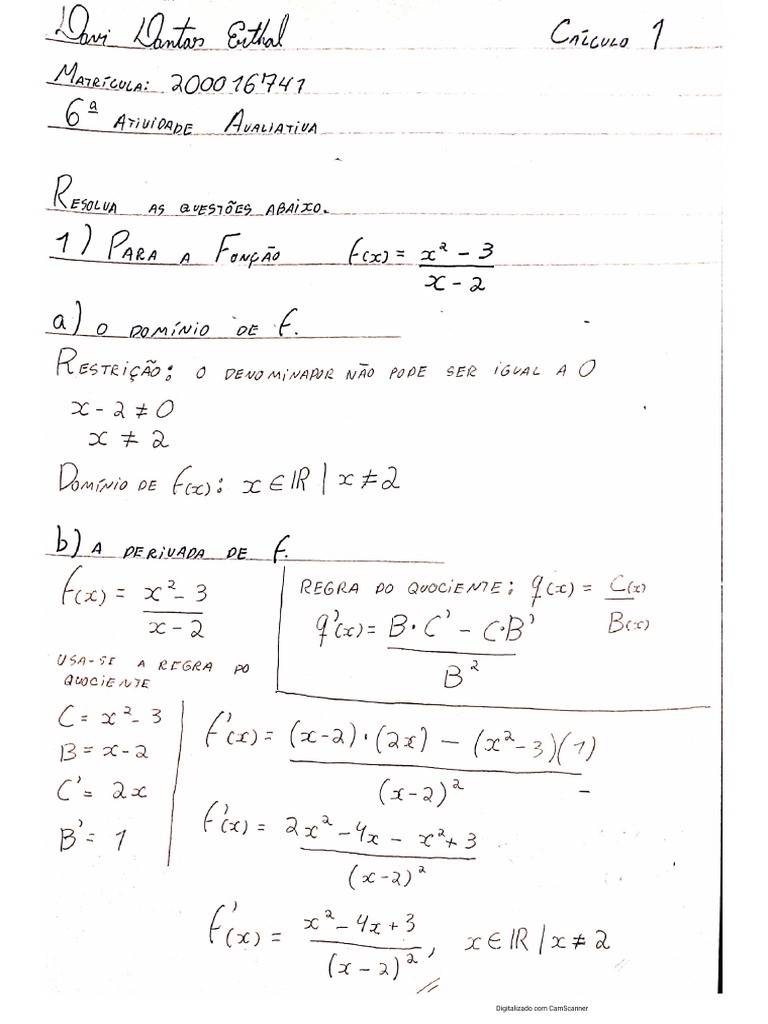 Davi Dantas Erthal Cálculo 1
Matrícula: 200016741
6ª Atividade Avaliativa
Resolva as questões abaixo.
1) Para a Função f(x) = (x² - 3)/(x - 2)
a) o domínio de f.
Restrição: o denominador não pode ser igual a 0
x - 2 ≠ 0
x ≠ 2
Domínio de f(x): x ∈ ℝ | x ≠ 2
b) a derivada de f.
f(x) = (x² - 3)/(x - 2)
Regra do quociente: q(x) = C(x)/B(x)
q'(x) = (B · C' - C · B')/B²
Usa-se a regra do
quociente
C = x² - 3
B = x - 2
C' = 2x
B' = 1
f'(x) = ((x-2) · (2x) - (x² - 3)(1))/(x-2)²
f'(x) = (2x² - 4x - x² + 3)/(x-2)²
f'(x) = (x² - 4x + 3)/(x - 2)², x ∈ ℝ / x ≠ 2
Digitalizado com CamScanner